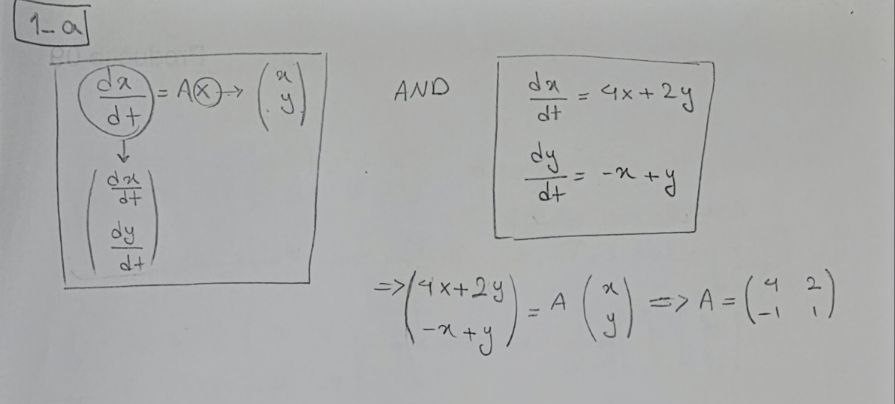 1-a
dx/dt = Ax → (x y)
↓
(dx/dt dy/dt)
AND
dx/dt = 4x + 2y
dy/dt = -x + y
=> (4x+2y -x+y) = A (x y) => A = (4 2 -1 1)